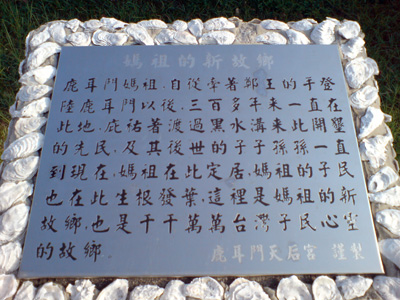 媽祖的新故鄉
鹿耳門媽祖，自從牽著鄭王的手登
陸鹿耳門以後，三百多年來一直在
此地，庇祐著渡過黑水溝來此開墾
的先民，及其後世的子子孫孫一直
到現在，媽祖在此定居，媽祖的子民
也在此生根發葉，這裡是媽祖的新
故鄉，也是千千萬萬台灣子民心靈
的故鄉
鹿耳門天后宮 謹製